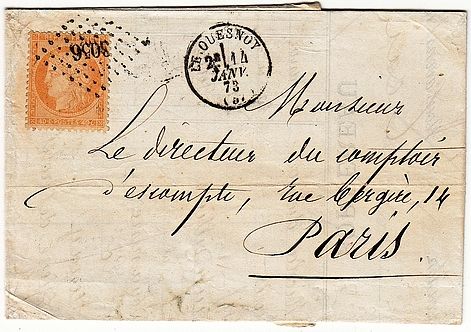 3056
LE QUESNOY
2E 14
JANV.
73
(57)
40 C. POSTES 40 C.
Monsieur
Le directeur du comptoir
d'escompte, rue Bergère, 14
Paris